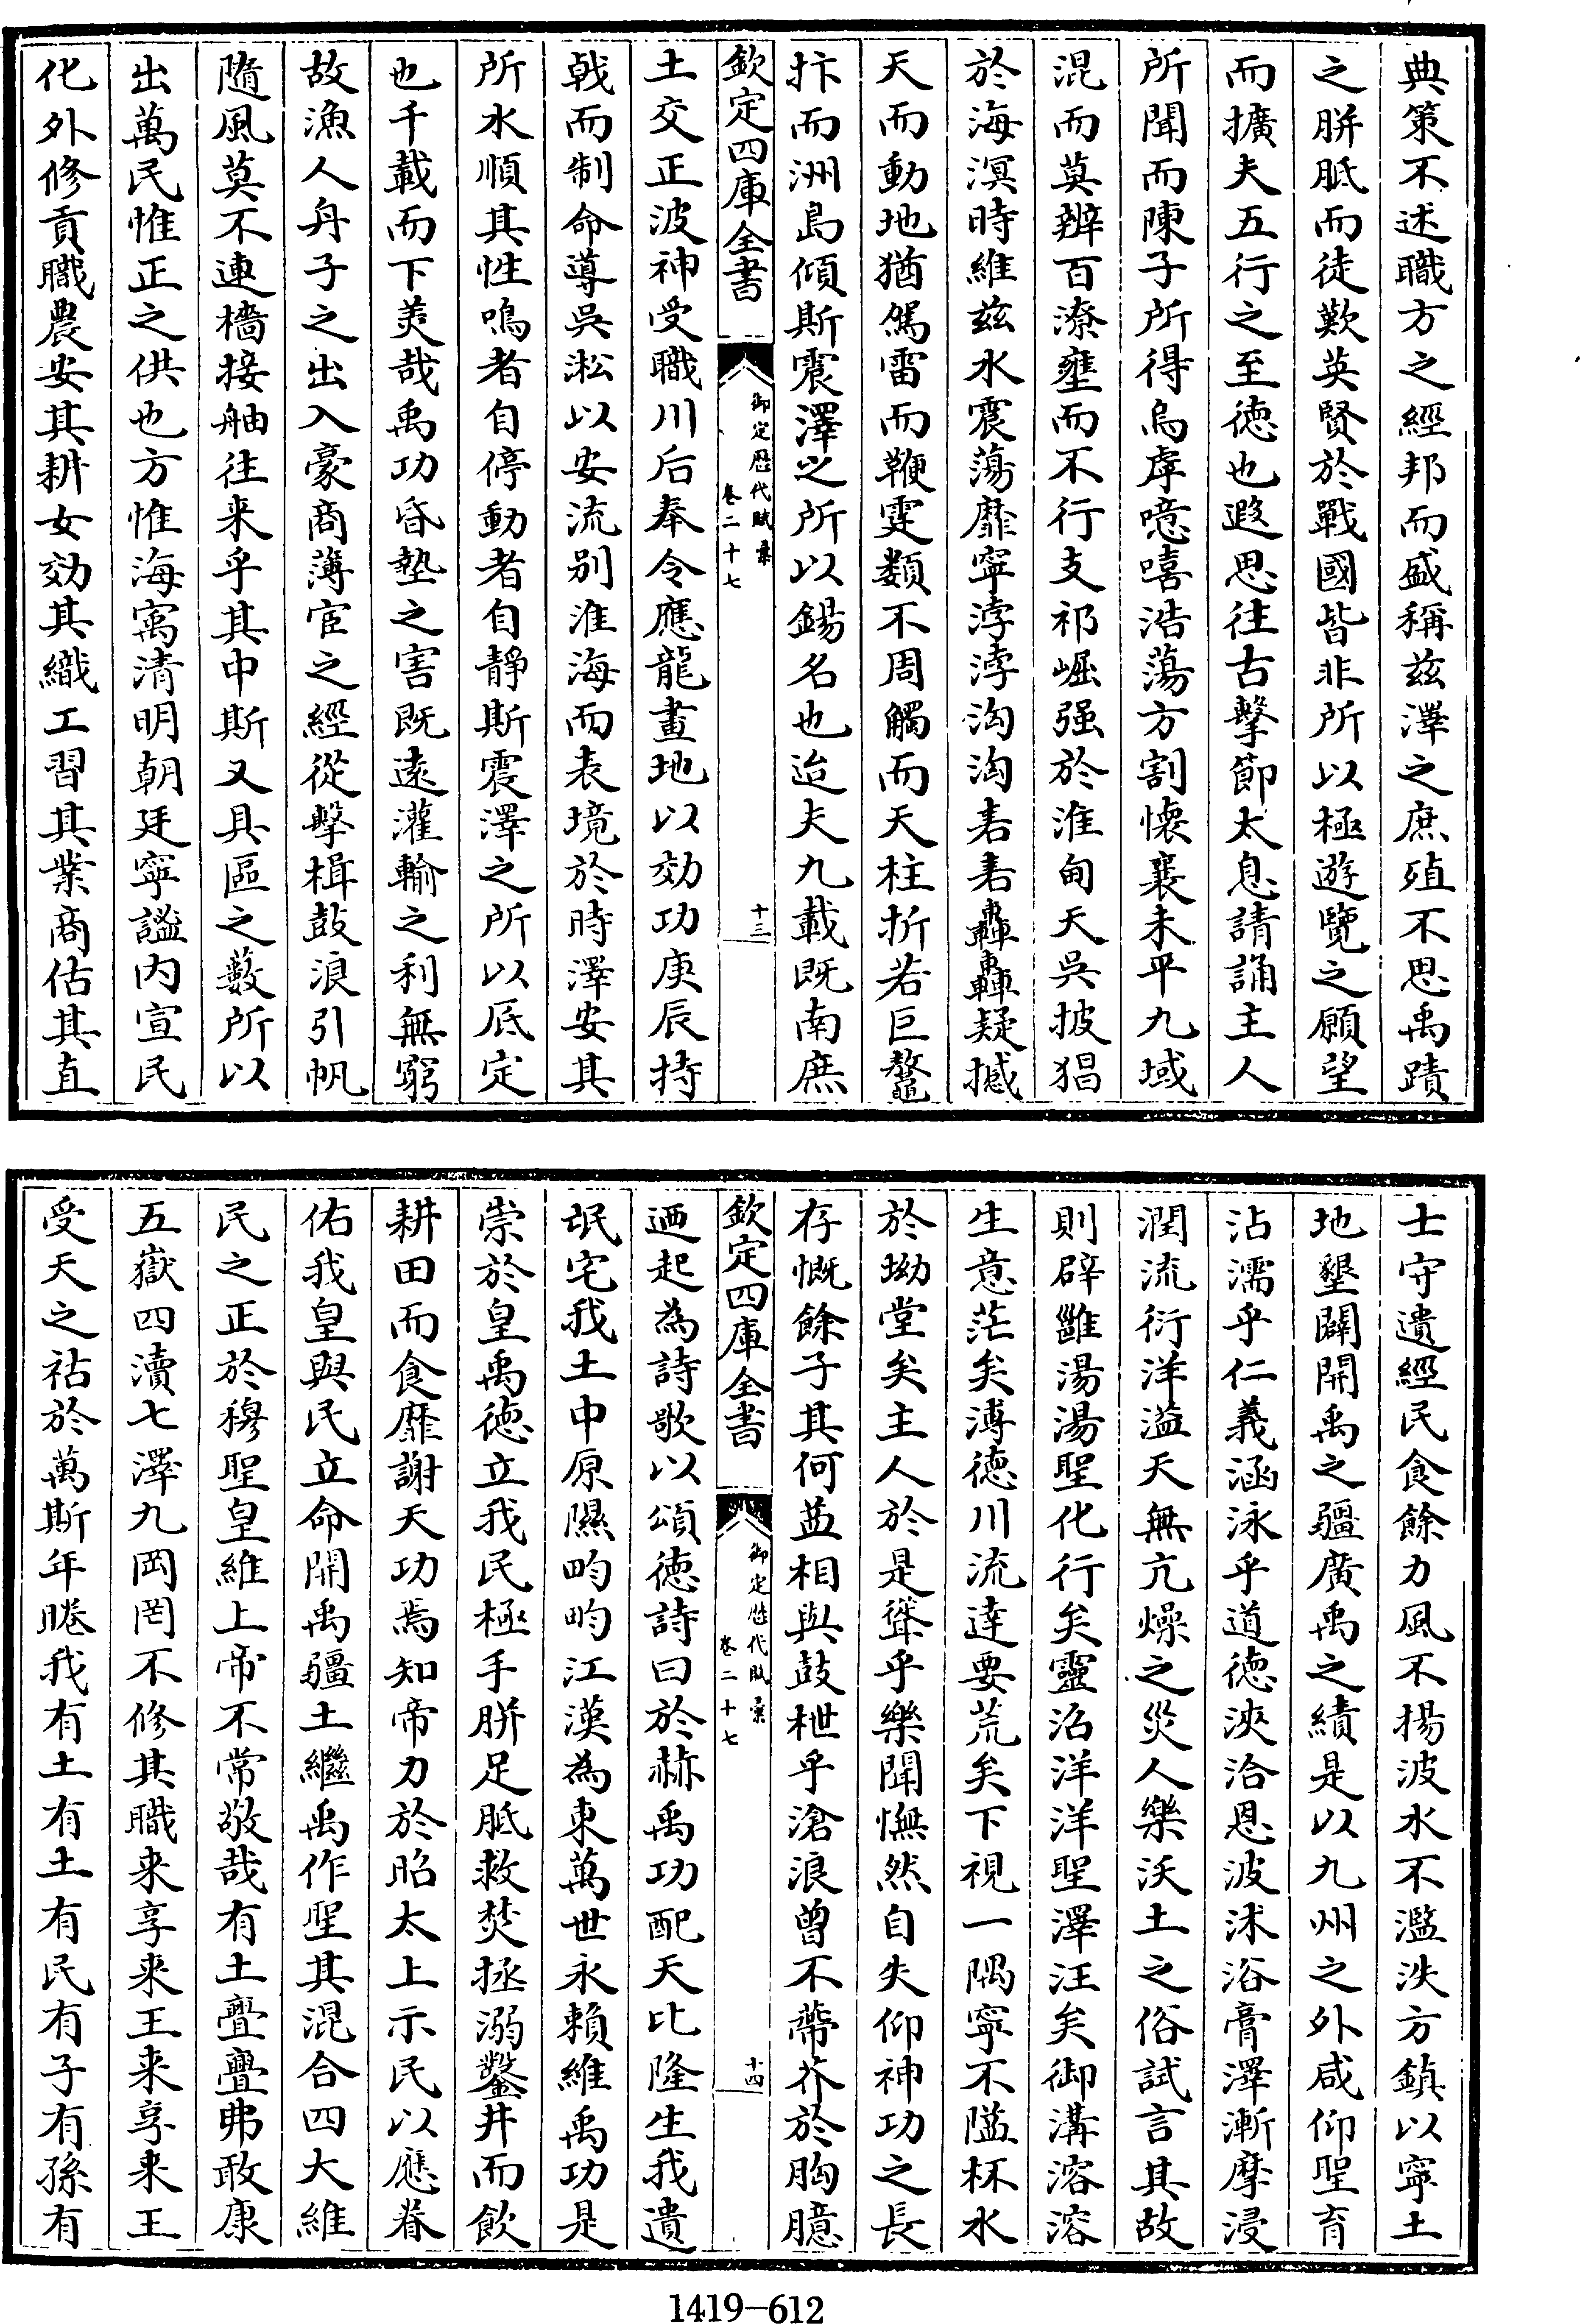 典策不述職方之經邦而盛稱兹澤之庶殖不思禹蹟
之胼胝而徒歎英賢於戰國皆非所以極遊覽之願望
而擴夫五行之至徳也遐思往古擊節太息請誦主人
所聞而陳子所得烏虖噫嘻浩蕩方割懷襄未平九域
混而莫辨百潦壅而不行支祁崛强於淮甸天吳披猖
於海溟時維兹水震蕩靡寧浡浡洶洶砉砉轟轟疑撼
天而動地猶駕雷而鞭霆類不周觸而天柱折若巨鼇
抃而洲島傾斯震澤之所以錫名也迨夫九載既南庶
欽定四庫全書
御定歴代賦彙
卷二十七
十三
土交正波神受職川后奉令應龍畫地以効功庚辰持
戟而制命導吳淞以安流别淮海而表境於時澤安其
所水順其性鳴者自停動者自靜斯震澤之所以底定
也千載而下美哉禹功昏墊之害既逺灌輸之利無窮
故漁人舟子之出入豪商薄宦之經從擊楫鼓浪引帆
隨風莫不連檣接舳往来乎其中斯又具區之藪所以
出萬民惟正之供也方惟海㝢清明朝廷寧謐内宣民
化外修貢職農安其耕女効其織工習其業商估其直
士守遺經民食餘力風不揚波水不濫泆方鎮以寧土
地墾闢開禹之疆廣禹之績是以九州之外咸仰聖育
沾濡乎仁義涵泳乎道徳浹洽恩波沭浴膏澤漸摩浸
潤流衍洋溢天無亢燥之災人樂沃土之俗試言其故
則辟雝湯湯聖化行矣靈沼洋洋聖澤汪矣御溝溶溶
生意茫矣溥徳川流逹要荒矣下視一隅寧不隘杯水
於坳堂矣主人於是聳乎樂聞憮然自失仰神功之長
存慨餘子其何益相與鼓枻乎滄浪曽不蔕芥於胸臆
欽定四庫全書
御定歴代賦彙
卷二十七
十四
迺起為詩歌以頌徳詩曰於赫禹功配天比隆生我遺
氓宅我土中原隰畇畇江漢為東萬世永賴維禹功是
崇於皇禹徳立我民極手胼足胝救焚拯溺鑿井而飲
耕田而食靡謝天功焉知帝力於昭太上示民以應眷
佑我皇與民立命開禹疆土繼禹作聖其混合四大維
民之正於穆聖皇維上帝不常敬哉有土亹亹弗敢康
五嶽四瀆七澤九岡罔不修其職来享来王来享来王
受天之祜於萬斯年睠我有土有土有民有子有孫有
1419-612